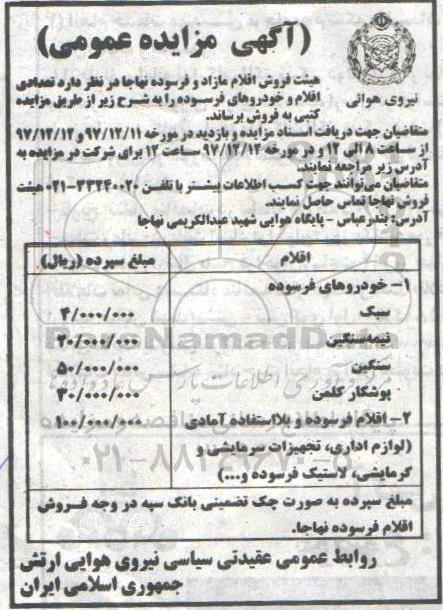 (آگهی مزایده عمومی)
نیروی هوائی
هیئت فروش اقلام مازاد و فرسوده نهاجا در نظر دارد تعدادی
اقلام و خودروهای فرسوده را به شرح زیر از طریق مزایده
کتبی به فروش برساند.
متقاضیان جهت دریافت اسناد مزایده و بازدید در مورخه ۹۷/۱۲/۱۱ و ۹۷/۱۲/۱۲
از ساعت ۸ الی ۱۲ و در مورخه ۹۷/۱۲/۱۴ ساعت ۱۲ برای شرکت در مزایده به
آدرس زیر مراجعه نمایند.
متقاضیان می‌توانند جهت کسب اطلاعات بیشتر با تلفن ۳۳۲۴۰۰۲۰-۰۲۱ هیئت
فروش نهاجا تماس حاصل نمایند.
آدرس: بندرعباس - پایگاه هوایی شهید عبدالکریمی نهاجا
اقلام مبلغ سپرده (ریال)
۱- خودروهای فرسوده
سبک ۴/۰۰۰/۰۰۰
نیمه‌سنگین ۲۰/۰۰۰/۰۰۰
سنگین ۵۰/۰۰۰/۰۰۰
پوشکار کلمن ۳۰/۰۰۰/۰۰۰
۲- اقلام فرسوده و بلااستفاده آمادی ۱۰۰/۰۰۰/۰۰۰
(لوازم اداری، تجهیزات سرمایشی و
گرمایشی، لاستیک فرسوده و...)
مبلغ سپرده به صورت چک تضمینی بانک سپه در وجه فروش
اقلام فرسوده نهاجا.
روابط عمومی عقیدتی سیاسی نیروی هوایی ارتش
جمهوری اسلامی ایران
ParsNamadData